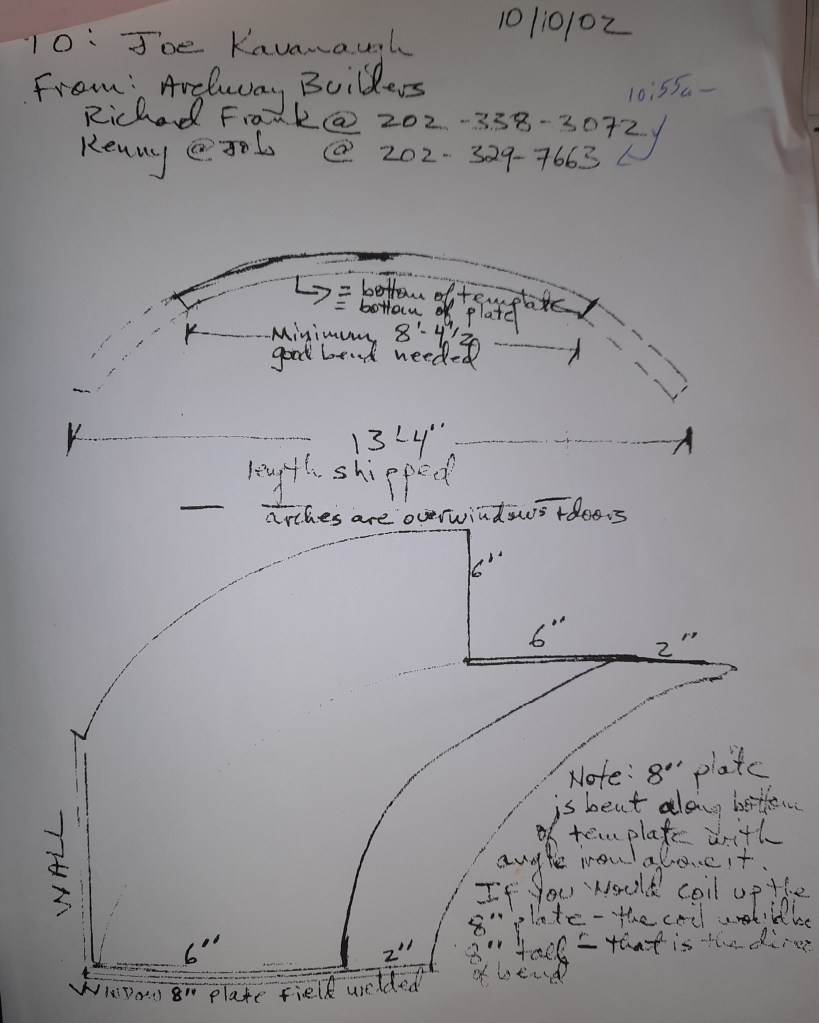 10/10/02
TO: Joe Kavanaugh
From: Archway Builders
10:55a-
Richard Frank @ 202-338-3072
Kenny @ Job @ 202-329-7663
= bottom of template
= bottom of plate
Minimum 8'-4"1/2
good bend needed
13'-4"
length shipped
arches are over windows + doors
6"
6" 2"
Note: 8" plate
is bent along bottom
of template with
angle iron above it.
If you would coil up the
8" plate - the coil would be
8" tall - that is the direc
of bend
WALL
6" 2"
WINDOW 8" plate field welded